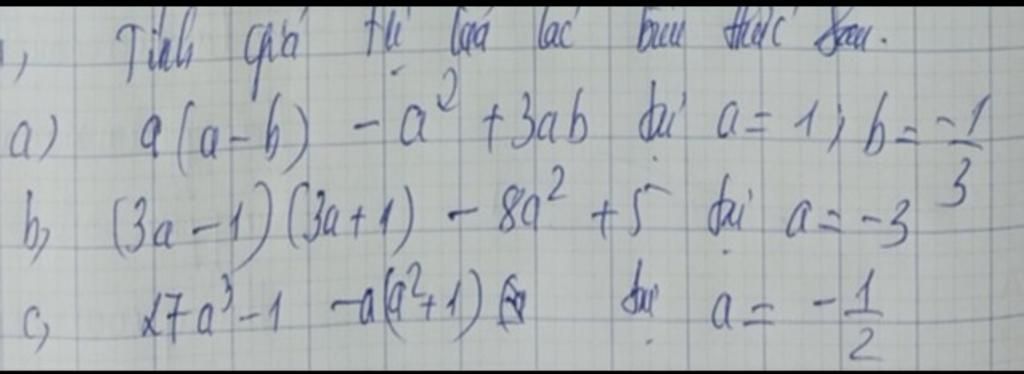 , Tính giá trị của các biểu thức sau.
a) a(a-b) - a² + 3ab tại a = 1; b = -1/3
b, (3a-1)(3a+1) - 8a² + 5 tại a = -3
c, 27a³ - 1 - a(a²+1) tại a = - 1/2